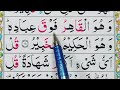 وَهُوَ الْقَاهِرُ فَوْقَ عِبَادِهٖ
وَهُوَ الْحَكِيْمُ الْخَبِيْرُ قُلْ
اَىُّ شَىْءٍ شَهَادَةً قُلِ